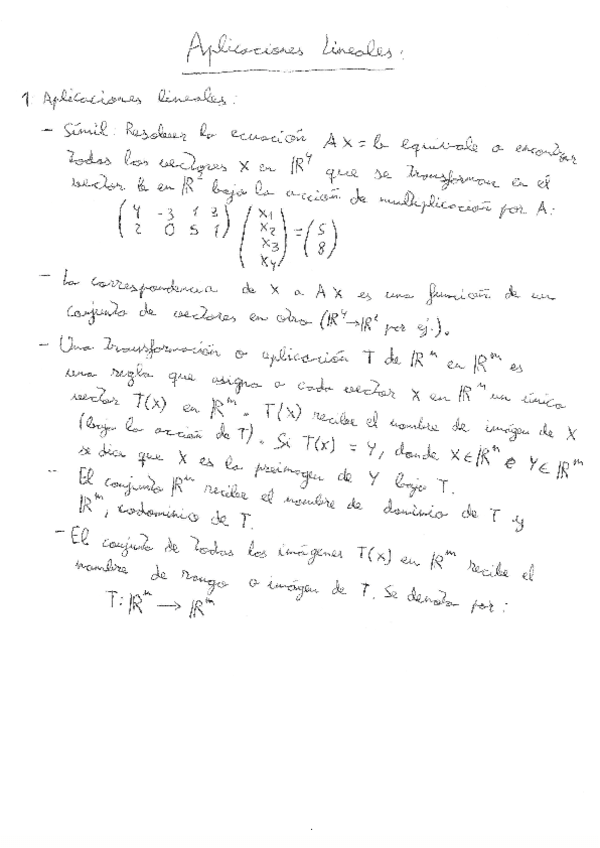 Aplicaciones Lineales:
1. Aplicaciones lineales:
- Símil: Resolver la ecuación AX=b equivale a encontrar
todos los vectores X en ℝ⁴ que se transforman en el
vector b en ℝ² bajo la acción de multiplicación por A:
(4 -3 1 3) (x1) = (5)
(2 0 5 1) (x2) (8)
(x3)
(x4)
- La correspondencia de X a AX es una función de un
conjunto de vectores en otro (ℝ⁴→ℝ² por ej.).
- Una transformación o aplicación T de ℝⁿ en ℝᵐ es
una regla que asigna a cada vector X en ℝⁿ un único
vector T(X) en ℝᵐ. T(X) recibe el nombre de imágen de X
(bajo la acción de T). Si T(X) = Y, donde X∈ℝⁿ e Y∈ℝᵐ
se dice que X es la preimagen de Y bajo T.
- El conjunto ℝⁿ recibe el nombre de dominio de T y
ℝᵐ, codominio de T.
- El conjunto de todas las imágenes T(X) en ℝᵐ recibe el
nombre de rango o imágen de T. Se denota por:
T: ℝⁿ → ℝᵐ